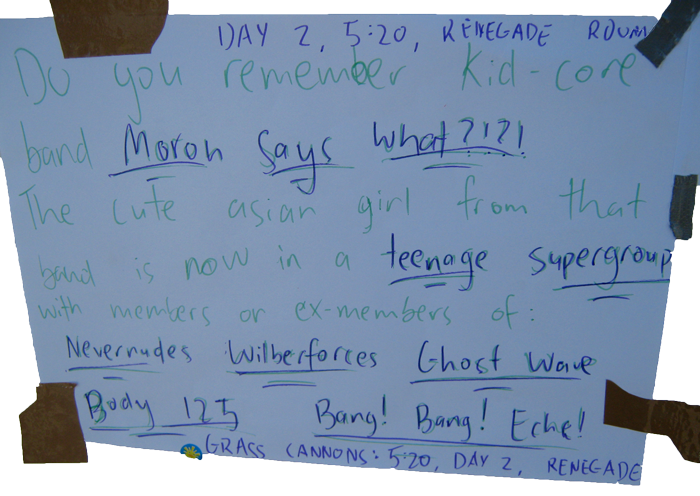 DAY 2, 5:20, RENEGADE ROOM
Do you remember Kid-core
band Moron Says What?!?!
The cute asian girl from that
band is now in a teenage supergroup
with members or ex-members of:
Nevernudes Wilberforces Ghost Wave
Body 125 Bang! Bang! Eche!
GRASS CANNONS: 5:20, DAY 2, RENEGADE